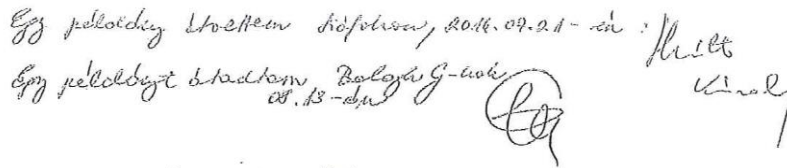 Egy példány átvettem Siófokon, 2014.07.21-én
Egy példányt átadtam, Balogh G-nek
08.13-án